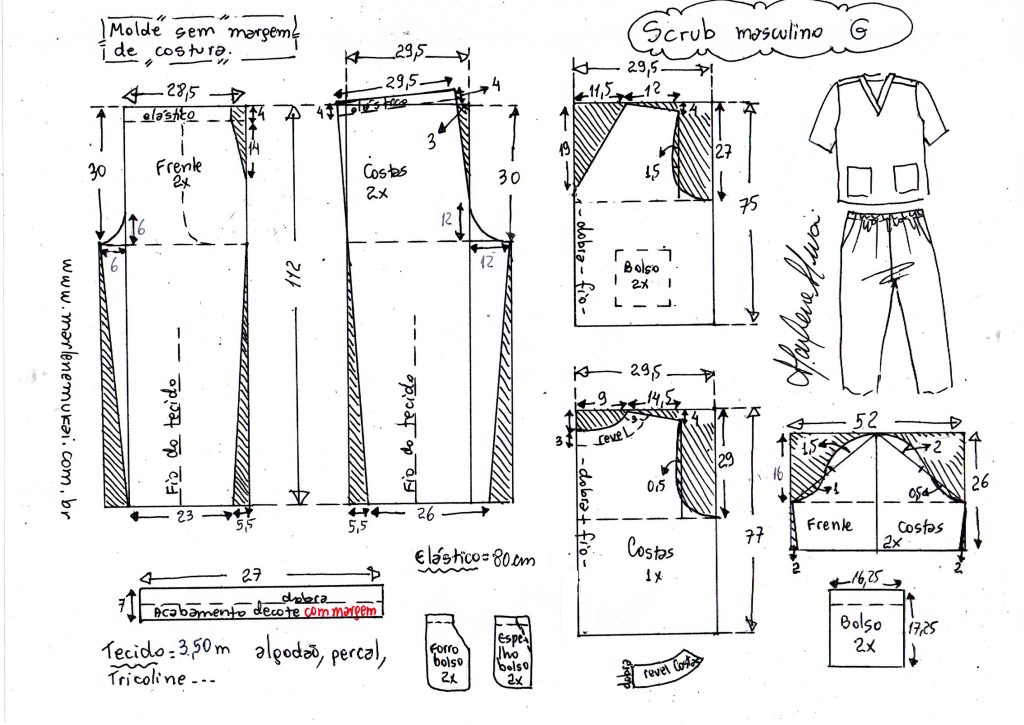 Molde sem margem
de costura.
Scrub masculino G
28,5
elástico
4
14
30
Frente
2x
6
6
Fio do tecido
23
5,5
112
29,5
29,5
elástico
4
4
3
30
Costas
2x
12
12
Fio do tecido
5,5
26
29,5
11,5
12
4
19
1,5
27
75
- dobra - fio -
Bolso
2x
29,5
9
14,5
4
3
3
revel
0,5
29
77
- dobra + fio -
Costas
1x
52
16
1,5
2
1
0,5
26
Frente
Costas
2x
2
2
16,25
Bolso
2x
17,25
www.marlenemukai.com.br
Marlene Mukai
27
7
dobra
Acabamento decote com margem
Elástico = 80cm
Tecido = 3,50m algodão, percal,
Tricoline ---
Forro
bolso
2x
Espe-
lho
bolso
2x
dobra
revel costas